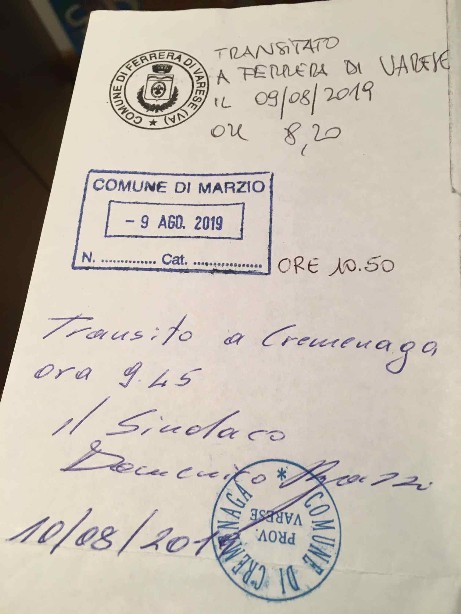 COMUNE DI FERRERA DI VARESE (VA)
TRANSITATO
A FERRERA DI VARESE
IL 09/08/2019
ORE 8,20
COMUNE DI MARZIO
- 9 AGO. 2019
N. .............. Cat. .................
ORE 10.50
Transito a Cremenaga
ora 9.45
il Sindaco
Domenico
10/08/2019
COMUNE DI CREMENAGA
PROV.
VARESE